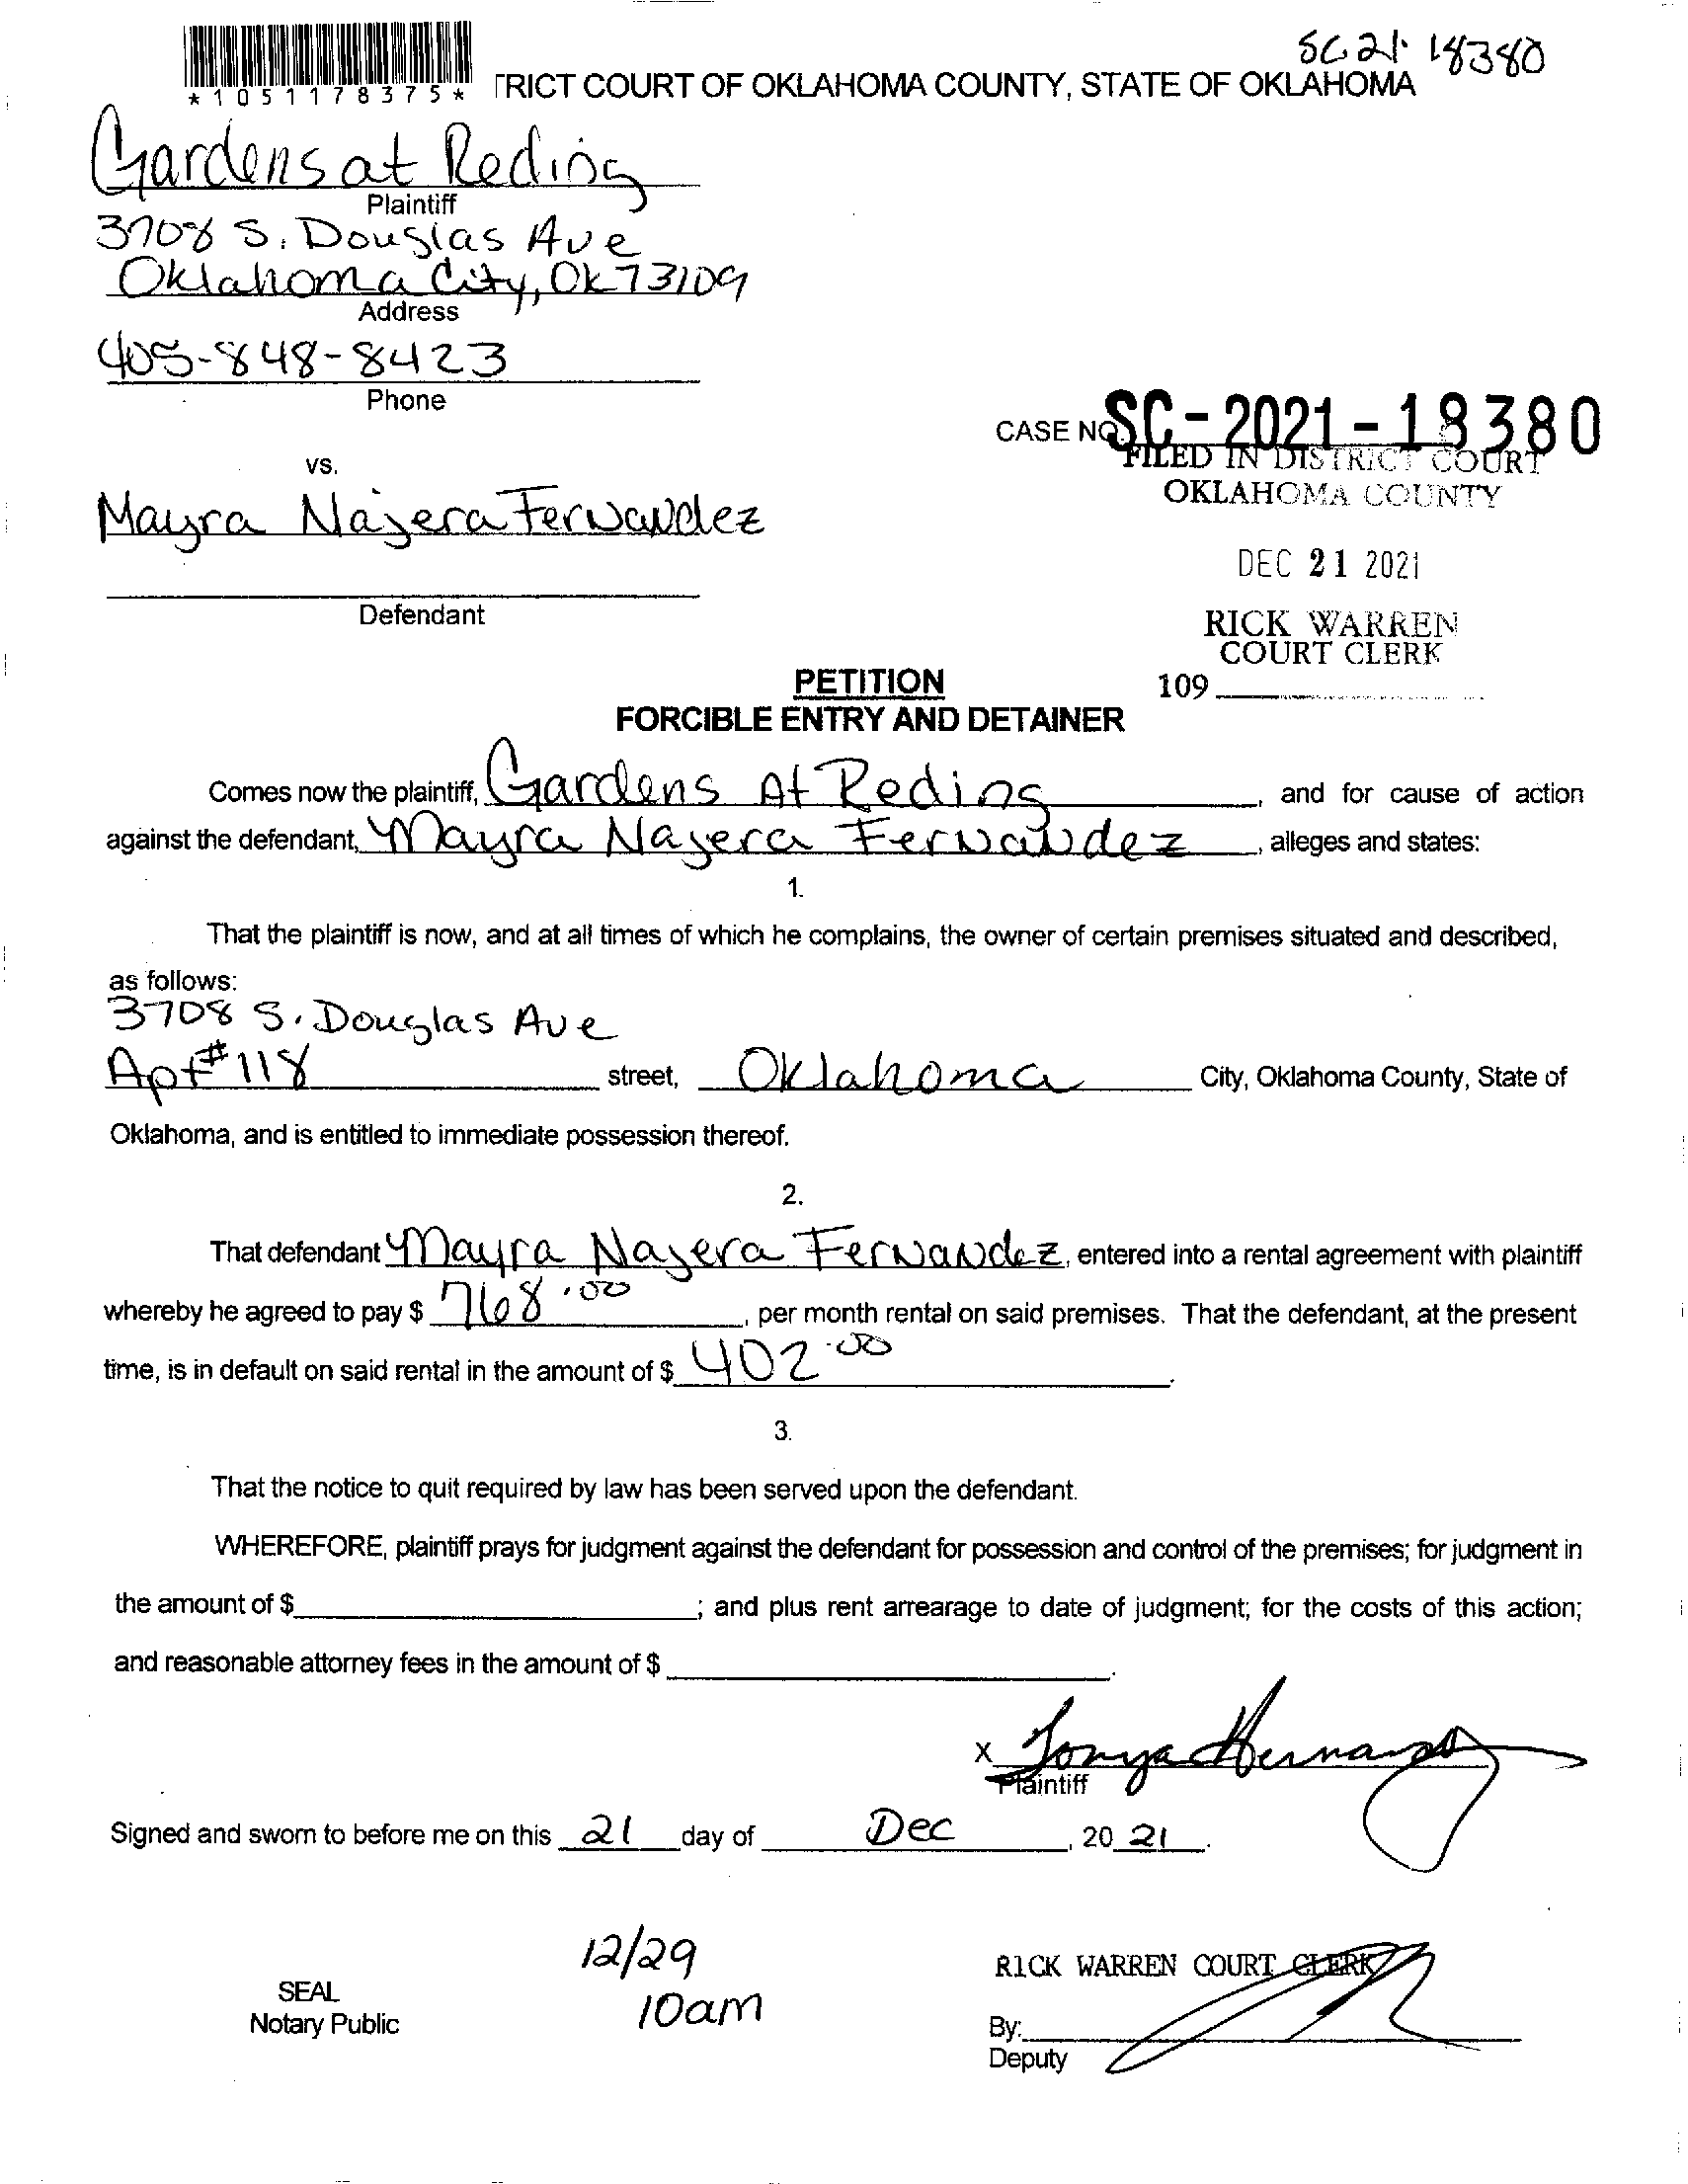 SC 21-18380
*1051178375*
TRICT COURT OF OKLAHOMA COUNTY, STATE OF OKLAHOMA
Gardens at Reding
Plaintiff
3708 S. Douglas Ave
Oklahoma City, Ok 73109
Address
405-848-8423
Phone
CASE NO. SC-2021-18380
FILED IN DISTRICT COURT
OKLAHOMA COUNTY
vs.
Mayra Najera Fernandez
DEC 21 2021
Defendant
RICK WARREN
COURT CLERK
109
PETITION
FORCIBLE ENTRY AND DETAINER
Comes now the plaintiff, Gardens At Reding, and for cause of action
against the defendant, Mayra Najera Fernandez, alleges and states:
1.
That the plaintiff is now, and at all times of which he complains, the owner of certain premises situated and described,
as follows:
3708 S. Douglas Ave
Apt #118 street, Oklahoma City, Oklahoma County, State of
Oklahoma, and is entitled to immediate possession thereof.
2.
That defendant Mayra Najera Fernandez, entered into a rental agreement with plaintiff
whereby he agreed to pay $ 768.00, per month rental on said premises. That the defendant, at the present
time, is in default on said rental in the amount of $ 402.00.
3.
That the notice to quit required by law has been served upon the defendant.
WHEREFORE, plaintiff prays for judgment against the defendant for possession and control of the premises; for judgment in
the amount of $ ; and plus rent arrearage to date of judgment; for the costs of this action;
and reasonable attorney fees in the amount of $ .
X Tonya Hernandez
Plaintiff
Signed and sworn to before me on this 21 day of Dec, 20 21.
12/29
10am
SEAL
Notary Public
RICK WARREN COURT CLERK
By:
Deputy